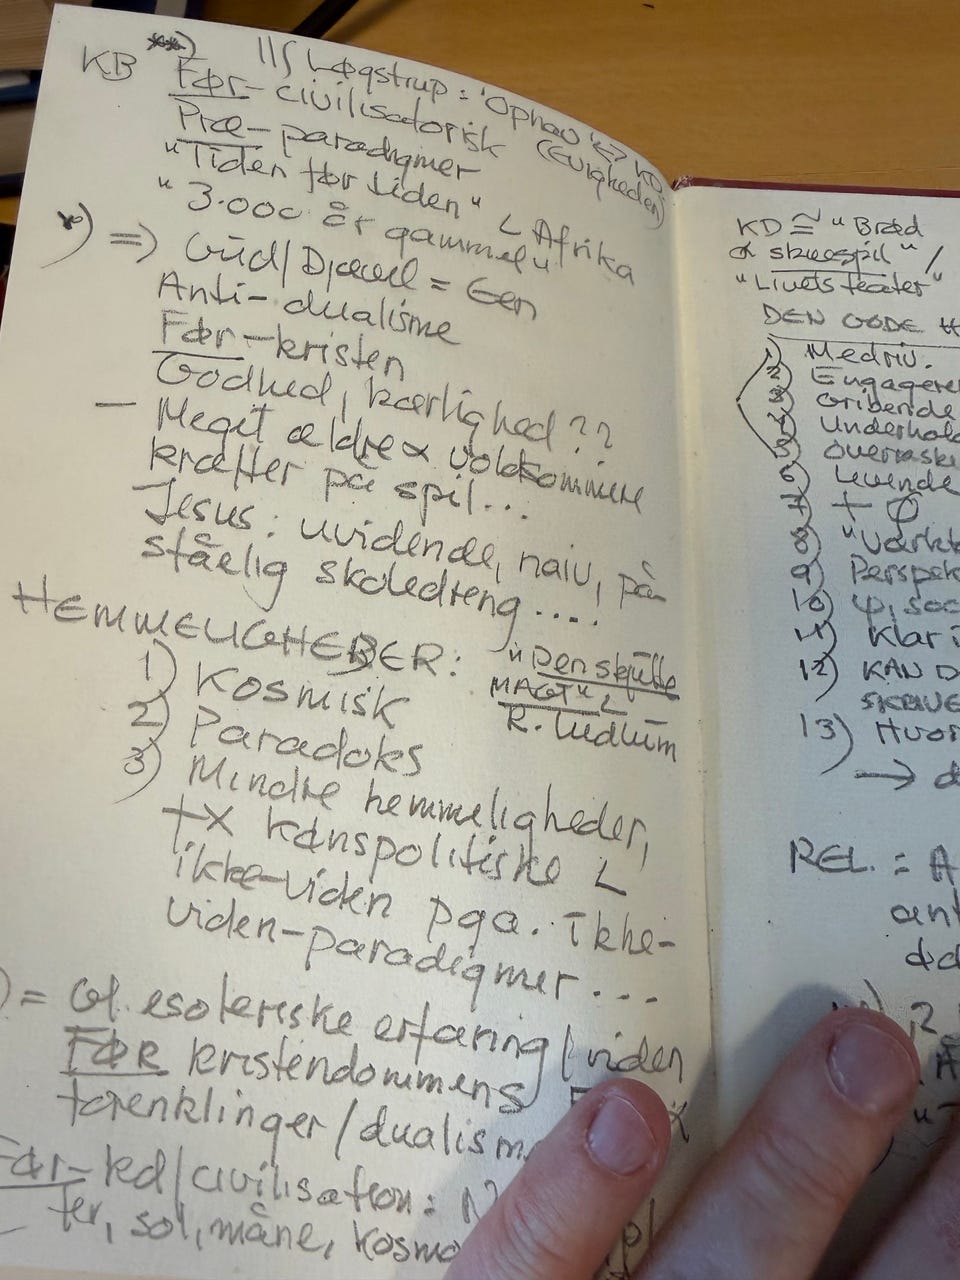 **) || S Løgstrup: "Ophav" <=> KD:
KB Før-civilisatorisk (Evigheden)
Præ-paradigmer
"Tiden før tiden" < Afrika
"3.000 år gammel"
*) => Gud/Djævel = Een
Anti-dualisme
Før-kristen
Godhed, kærlighed??
- Meget ældre & voldsommere
kræfter på spil...
- Jesus: uvidende, naiv, på-
ståelig skoledreng....
HEMMELIGHEDER: "Den skjulte
MAGT" <
R. Ludlum
1) Kosmisk
2) Paradoks
3) Mindre hemmeligheder,
tx kønspolitiske <
ikke-viden pga. ikke-
viden-paradigmer...
) = Gl. esoteriske erfaring/viden
FØR kristendommens
forenklinger/dualism
Før-kd/civilisation: N
ter, sol, måne, kosmo
KD ≅ "Brød
& skuespil" /
"Livets teater"
DEN GODE H
1) Medriv.
2) Engagere
3) Gribende
4) Underhold
5) Overraske
6) Levende
7) + φ
8) "Værkt
9) Perspek
10) φ, soc
11) Klar i
12) KAN D
SKRIVE
13) Hvor
→ d
REL. = A
ant